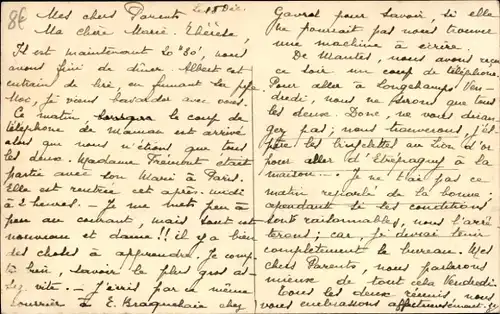 8€
Le 18 Déc.
Mes chers Parents
Ma chère Marie-Thérèse,
Il est maintenant 20 h, nous
avons fini de dîner. Albert est
entrain de lire en fumant la pipe.
Moi, je viens bavarder avec vous.
Ce matin, lorsque le coup de
téléphone de Maman est arrivé
alors que nous n'étions que tous
les deux. Madame Tremont était
partie avec son Mari à Paris.
Elle est rentrée cet après-midi
à 2 heures. - Je me mets peu à
peu au courant, mais tout est
nouveau et dame!! il y a bien
des choses à apprendre. Je compte
bien, savoir le plus
vite. - J'écris par ce même
courrier à E. chez
Gavrot pour savoir, si elle
ne pourrait pas nous trouver
une machine à écrire.
De Mantes, nous avons reçu
ce soir un coup de téléphone
Pour aller à Longchamps Ven-
dredi, nous ne serons que tous
les deux. Donc, ne vous déran-
gez pas; nous trouverons j'es-
père les bicyclettes au Lion d'or
pour aller d'Etrépagny à la
maison. - Je ne t'ai pas ce
matin reparlé de la bonne
cependant si les conditions
sont raisonnables, nous l'arrê-
terons; car, je devrai tenir
complètement le bureau. Mes
chers Parents, nous parlerons
mieux de tout cela Vendredi.
Tous les deux réunis, nous
vous embrassons affectueusement.